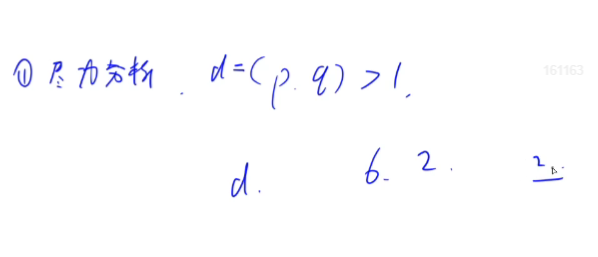 ① 受力分析. d=(p.q)>1.
161163
d. 6. 2. 2